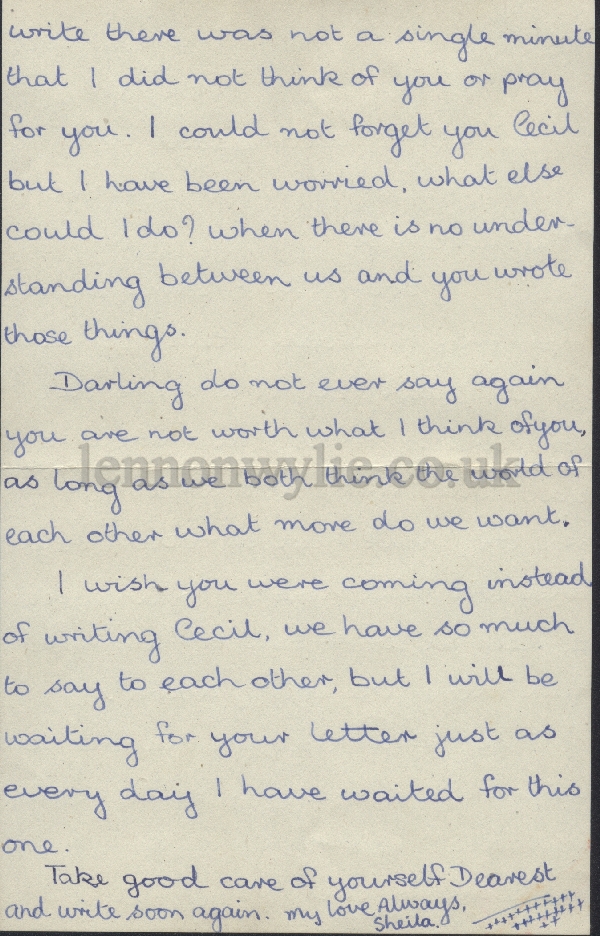 write there was not a single minute
that I did not think of you or pray
for you. I could not forget you Cecil
but I have been worried, what else
could I do? when there is no under-
standing between us and you wrote
those things.
Darling do not ever say again
you are not worth what I think of you,
lennonwylie.co.uk
as long as we both think the world of
each other what more do we want.
I wish you were coming instead
of writing Cecil, we have so much
to say to each other, but I will be
waiting for your letter just as
every day I have waited for this
one.
Take good care of yourself Dearest
and write soon again. my love Always,
Sheila.